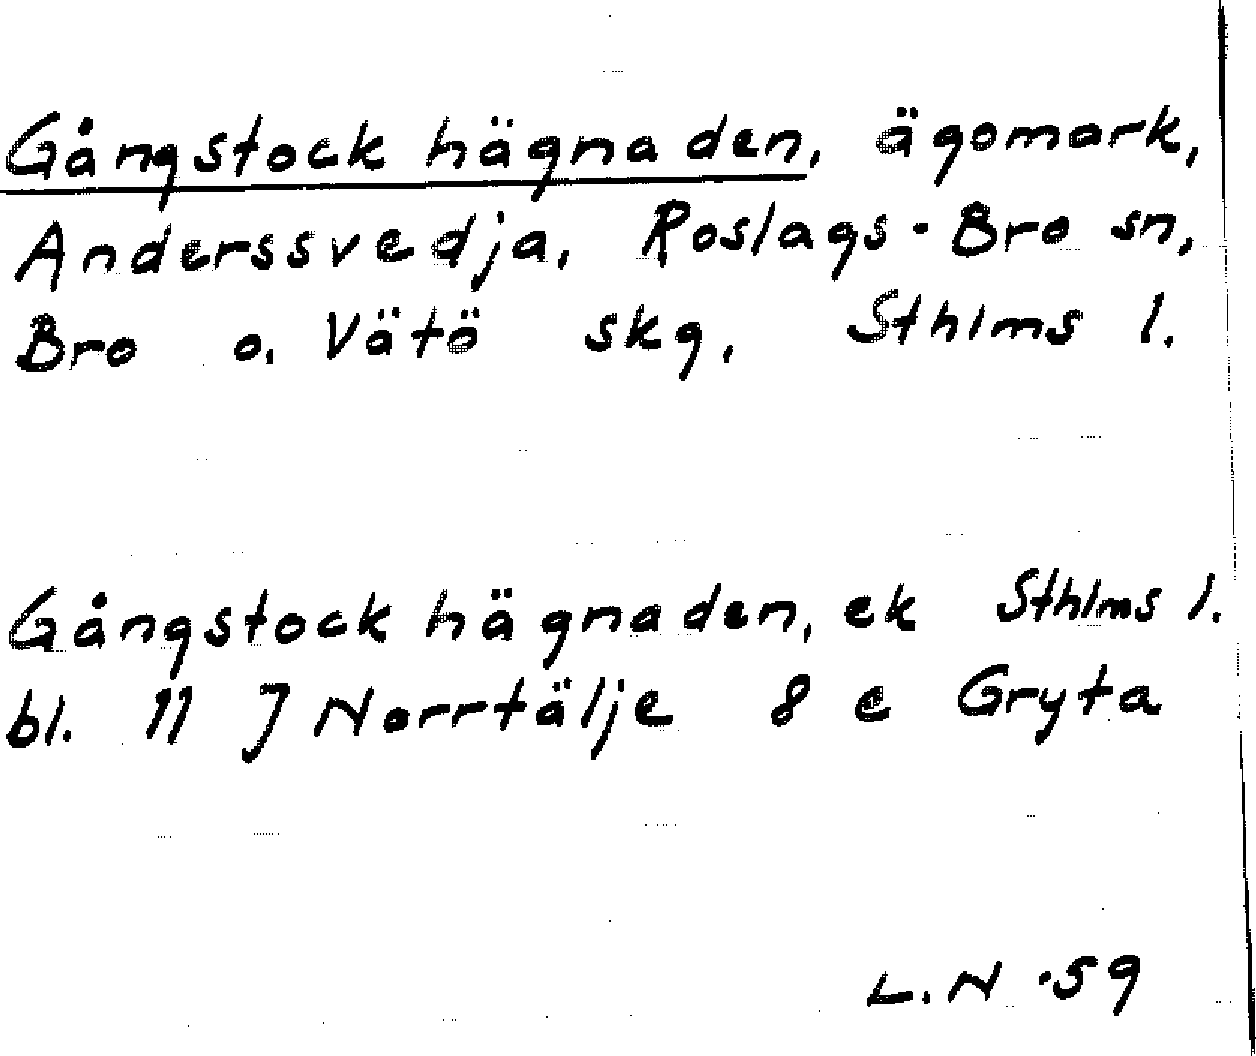 Gångstockhägnaden, ägomark,
Anderssvedja, Roslags-Bro sn,
Bro o. Vätö skg, Sthlms l.
Gångstockhägnaden, ek Sthlms l.
bl. 11 J Norrtälje 8 e Gryta
L.N ·59